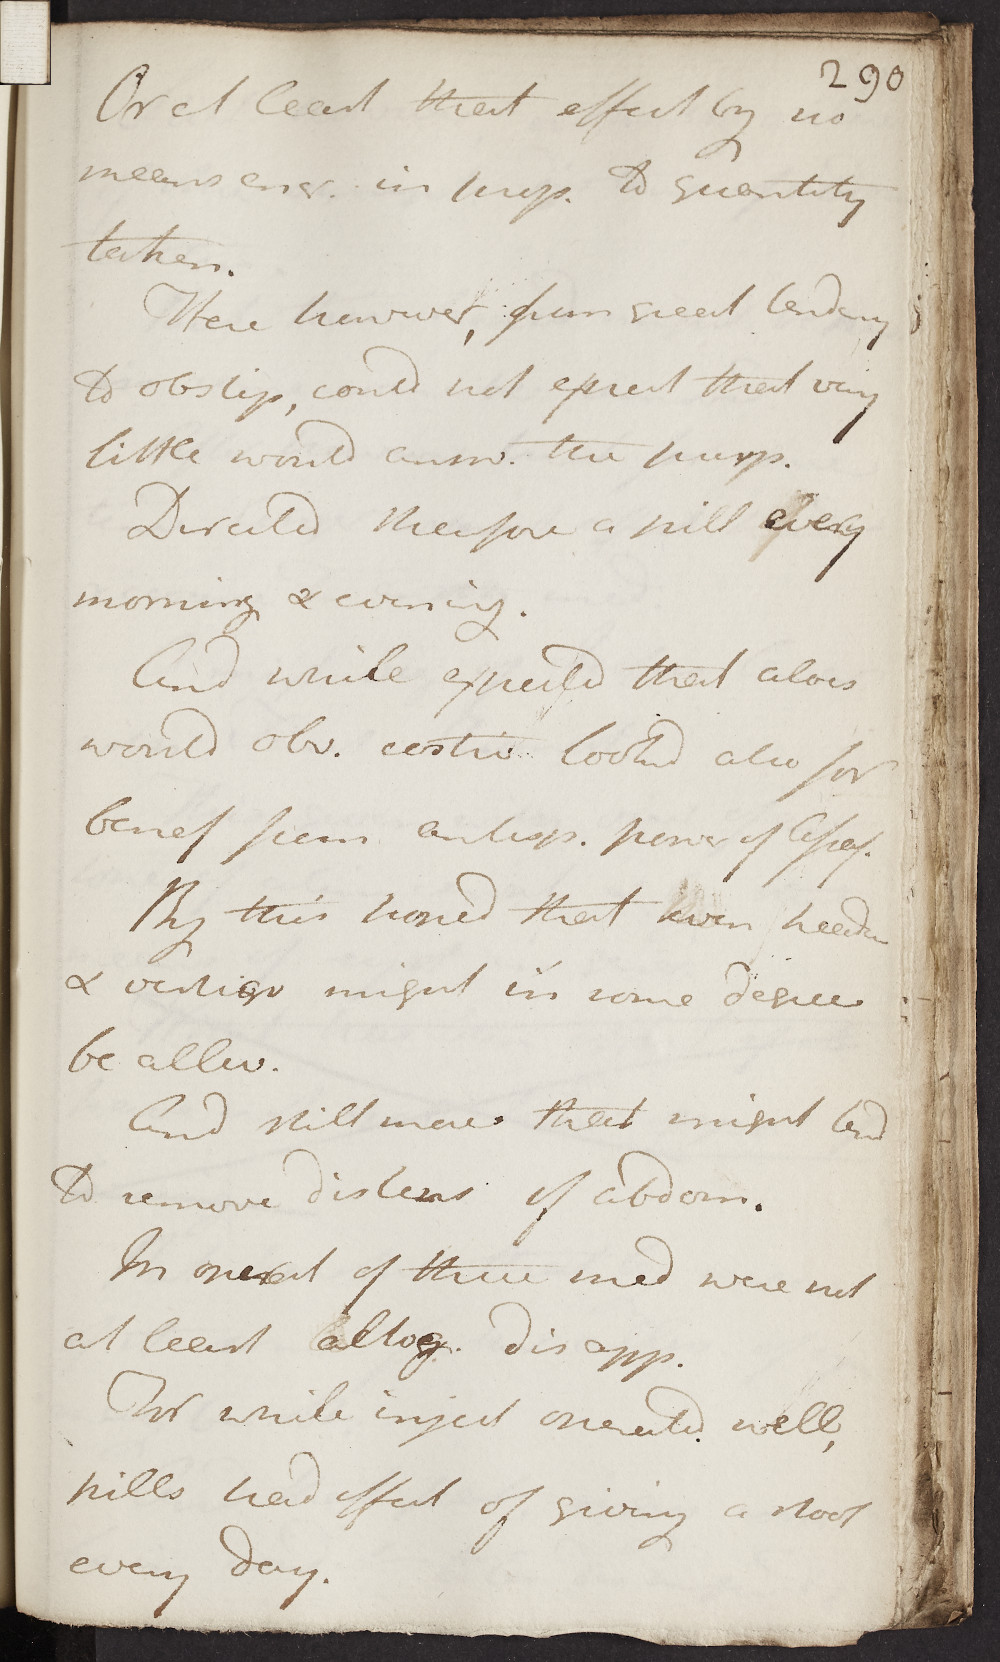 290
Or at least that effect by no
means answ. in prop. to quantity
taken.
Here however, from great tendency
to obstip, could not expect that very
little would answ. the purp.
Directed therefore a pill every
morning & evening.
And while expected that aloes
would obv. costiv. looked also for
benef from antisp. power of Asaf.
By this hoped that even headac
& vertigo might in some degree
be allev.
And still more that might tend
to remove distens of abdom.
In operat of these med were not
at least altog. disapp.
For while inject operated well,
pills had effect of giving a stool
every day.